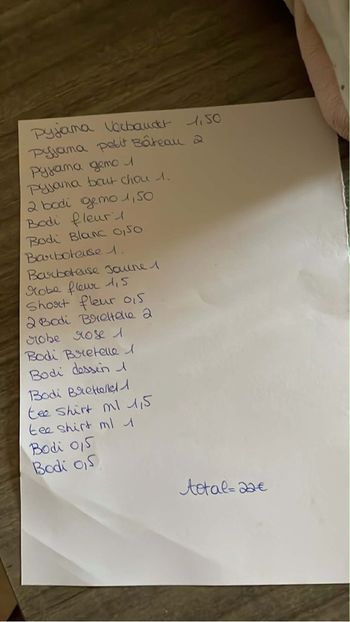 Pyjama Verbaudet 1,50
Pyjama petit Bâteau 2
Pyjama gemo 1
Pyjama bout chou 1.
2 bodi gemo 1,50
Bodi fleur 1
Bodi Blanc 0,50
Barboteuse 1.
Barboteuse Jaune 1
robe fleur 1,5
Short fleur 0,5
2 Bodi Bretelle 2
robe rose 1
Bodi Bretelle 1
Bodi dessin 1
Bodi Bretelle 1
tee shirt ml 1,5
tee shirt ml 1
Bodi 0,5
Bodi 0,5
total = 22€